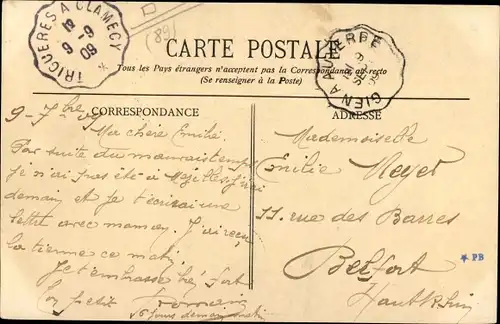 TRIGUERES A CLAMECY
9 - 9
09
(89)
CARTE POSTALE
GIEN A AUXERRE
Tous les Pays étrangers n'acceptent pas la Correspondance au recto
(Se renseigner à la Poste)
CORRESPONDANCE
ADRESSE
9 - 7bre 09
Ma chère Emilie
Par suite du mauvais temps
je n'ai pas été à
demain et je t'écrirai une
lettre avec maman. J'ai reçu
la tienne ce matin.
Je t'embrasse bé fort
Ton petit Romain
Mademoiselle
Emilie Meyer
11. rue des Barres
Belfort
Haut Rhin
* PB